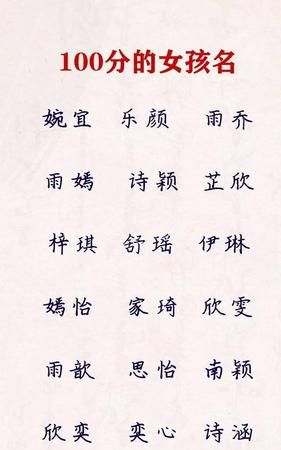 100分的女孩名
婉宜 乐颜 雨乔
雨嫣 诗颖 芷欣
梓琪 舒瑶 伊琳
嫣怡 家琦 欣雯
雨歆 思怡 南颖
欣奕 奕心 诗涵